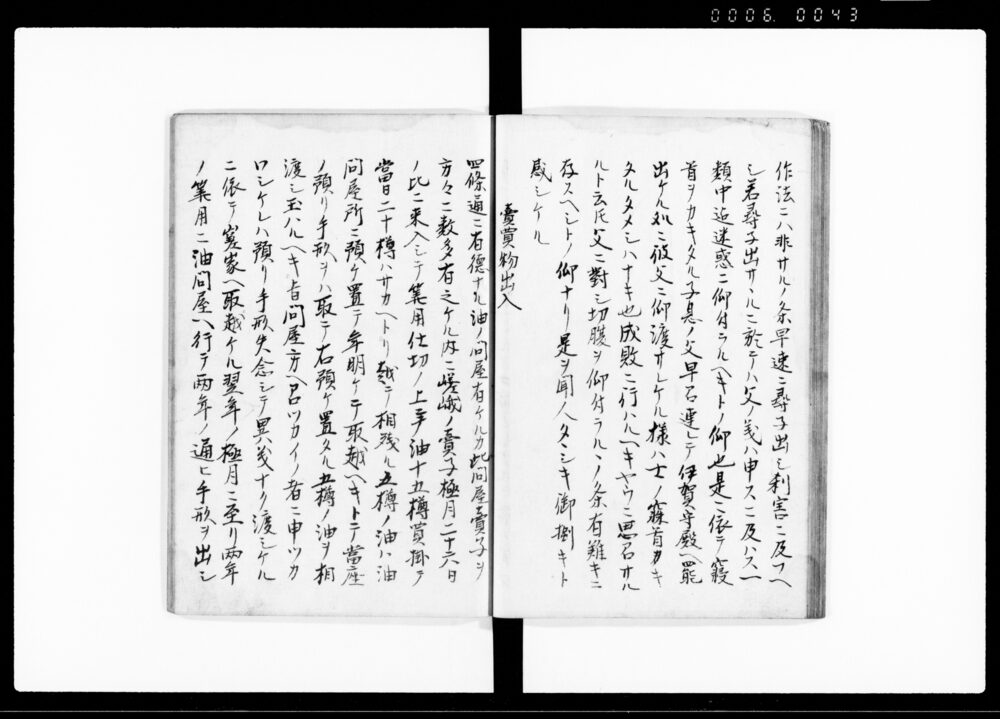 0006.0043
作法ニハ非サルノ条早速ニ尋子出シ刹害ニ及フヘ
シ若尋子出サヽルニ於テハ父ノ義ハ申スニ及ハス一
類中迄迷惑ニ仰付ラルヘキトノ仰也是ニ依テ寝
首ヲカキタル子息ノ父早召連レテ伊賀守殿ヘ罷
出ケル処ニ彼父ニ仰渡サレケル様ハ士ノ寐首カキ
タルタメシハナキ也成敗ニ行ハルヘキヤウニ思召サル
ルト云氏父ニ對シ切腹ヲ仰付ラルヽノ条有難キニ
存スヘシトノ仰ナリ是ヲ聞人タメシキ御捌キト
感シケル
賣買物出入
四條通ニ有徳ナル油ノ問屋有ケルカ此問屋賣子ヲ
方々ニ数多有之ケル内ニ嵯峨ノ賣子極月二十六日
ノ比ニ来入シテ筭用仕切ノ上ニテ油十五樽買掛テ
當日二十樽ハサカヘトリ越テ相残ル五樽ノ油ハ油
問屋所ニ預ケ置テ年明ケテ取越ヘキトテ當座
ノ預リ手形ヲハ取テ右預ケ置タル五樽ノ油ヲ相
渡シ玉ハルヘキ旨問屋方ヘ召ツカイノ者ニ申ツカ
ワシケレハ預リ手形失念シテ異義ナク渡シケル
ニ依テ嵳家ヘ取越ケル翌年ノ極月ニ至リ両年
ノ筭用ニ油問屋ヘ行テ両年ノ通ヒ手形ヲ出シ